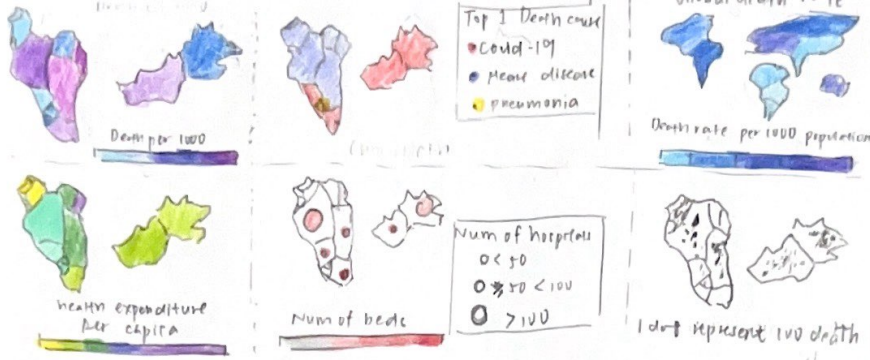 Top 1 Death cause
Covid-19
disease
pneumonia
Death per 1000
Death rate per 1000 population
health expenditure
Per capita
Num of beds
Num of hospitals
0 < 50
50 < 100
> 100
1 dot represent 100 death